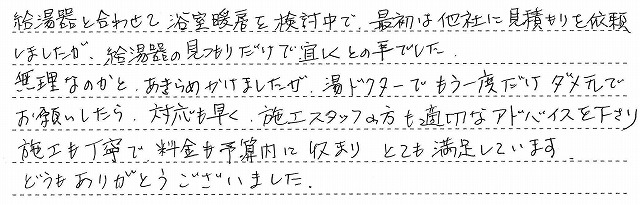 給湯器と合わせて浴室暖房を検討中で、最初は他社に見積もりを依頼
しましたが、給湯器の見つもりだけで宜しくとの事でした。
無理なのかと、あきらめかけましたが、湯ドクターでもう一度だけダメ元で
お願いしたら、対応も早く、施工スタッフの方も適切なアドバイスを下さり
施工も丁寧で、料金も予算内に収まり とても満足しています。
どうもありがとうございました。